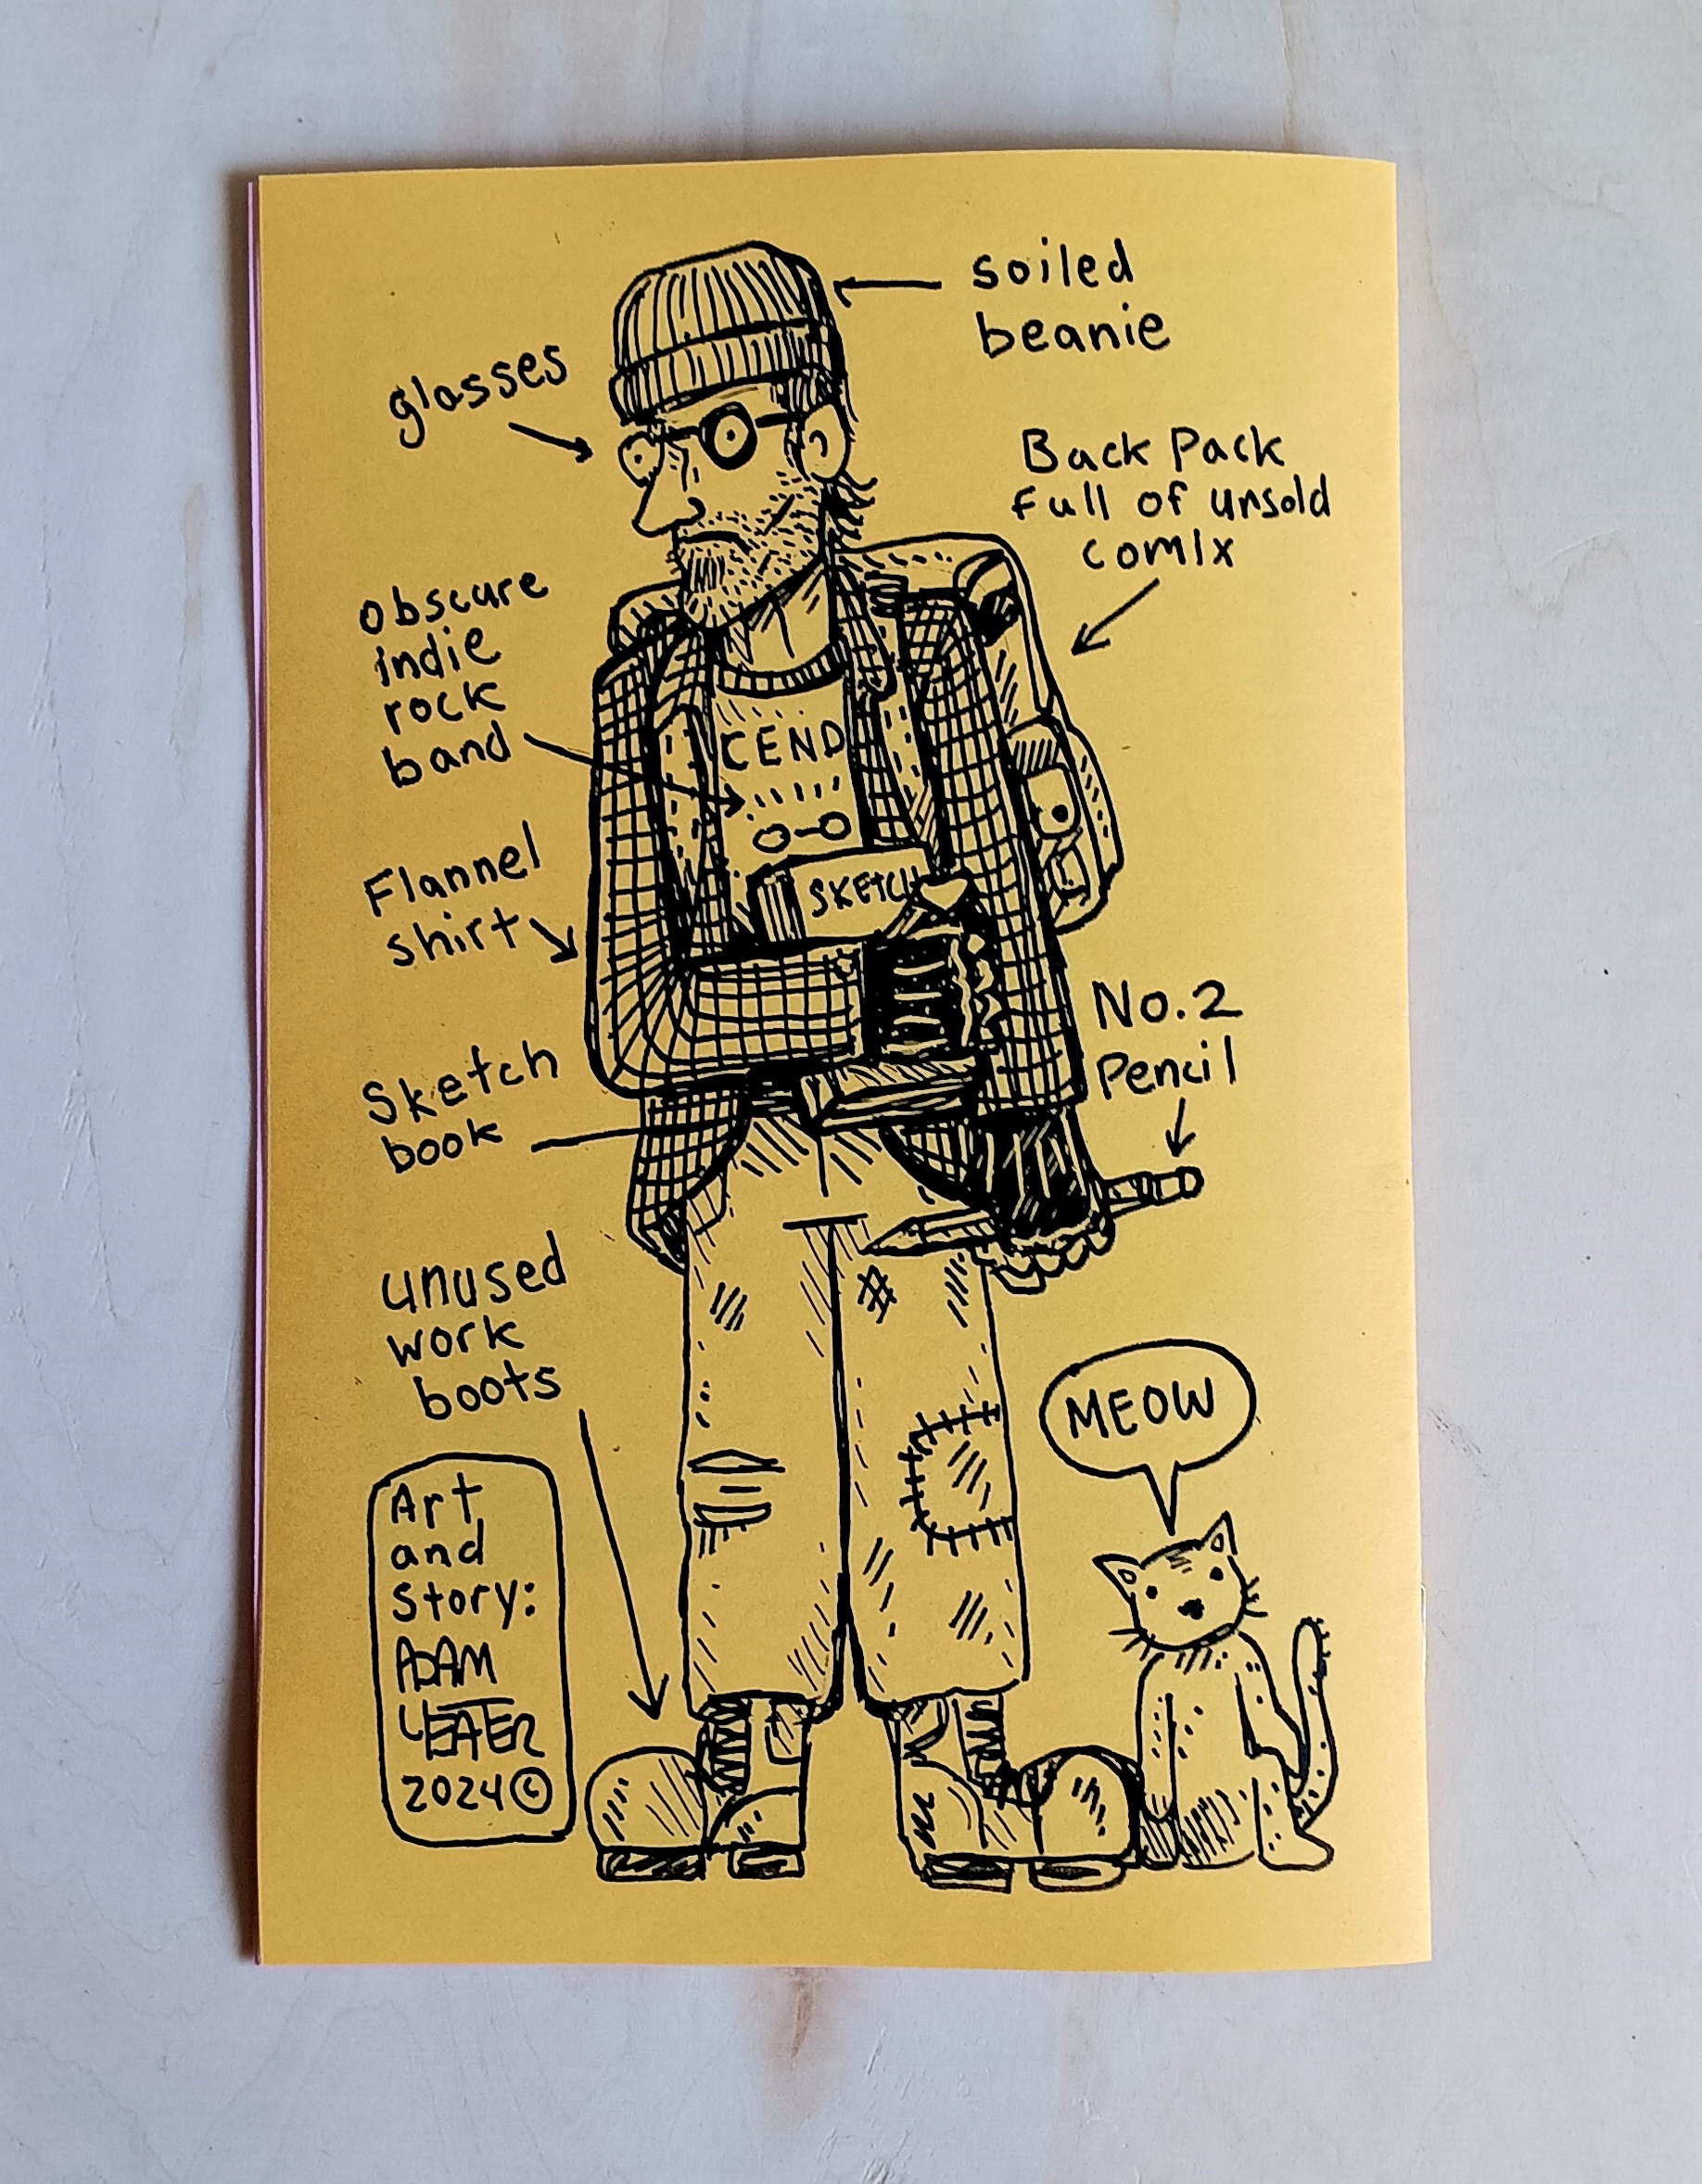 soiled
beanie
glasses
Back Pack
Full of unsold
comix
obscure
indie
rock
band
CEND
Flannel
shirt
SKETCH
No.2
Pencil
Sketch
book
unused
work
boots
MEOW
Art
and
story:
ADAM
YEATER
2024©